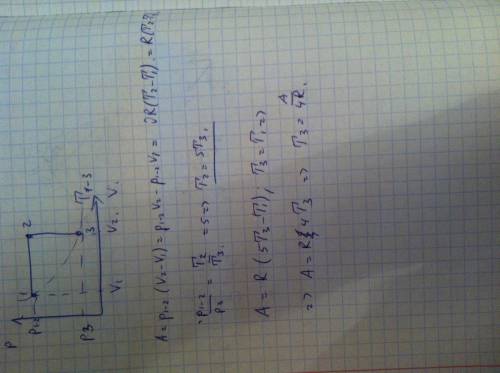 P
1 2
P₁₋₂
T₁₋₃
P₃ 3
V₁ V₂. V.
A = p₁₋₂ (V₂-V₁) = p₁₋₂V₂ - p₁₋₂V₁ = ϑR(T₂-T₁) = R(T₂-T₁)
p₁₋₂/p₃ = T₂/T₃ = 5 => T₂ = 5T₃,
A = R (5T₃-T₁); T₃ = T₁ =>
=> A = R 4T₃ => T₃ = A/4R.